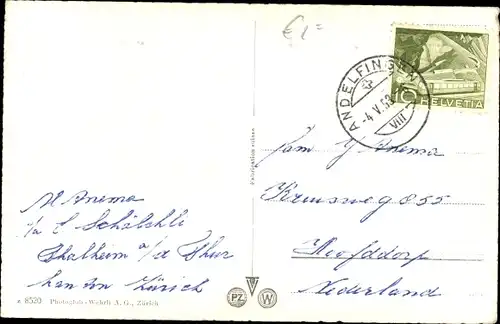 € 1=
ANDELFINGEN
-4.V.53
VIII
10 HELVETIA
Fam J. Anema
Kruisweg 855
Hoofddorp
Nederland
Anema
p/a E Schölchli
Thalheim a/d Thur
kanton Zürich
8520 Photoglob-Wehrli A. G., Zürich
PZ W